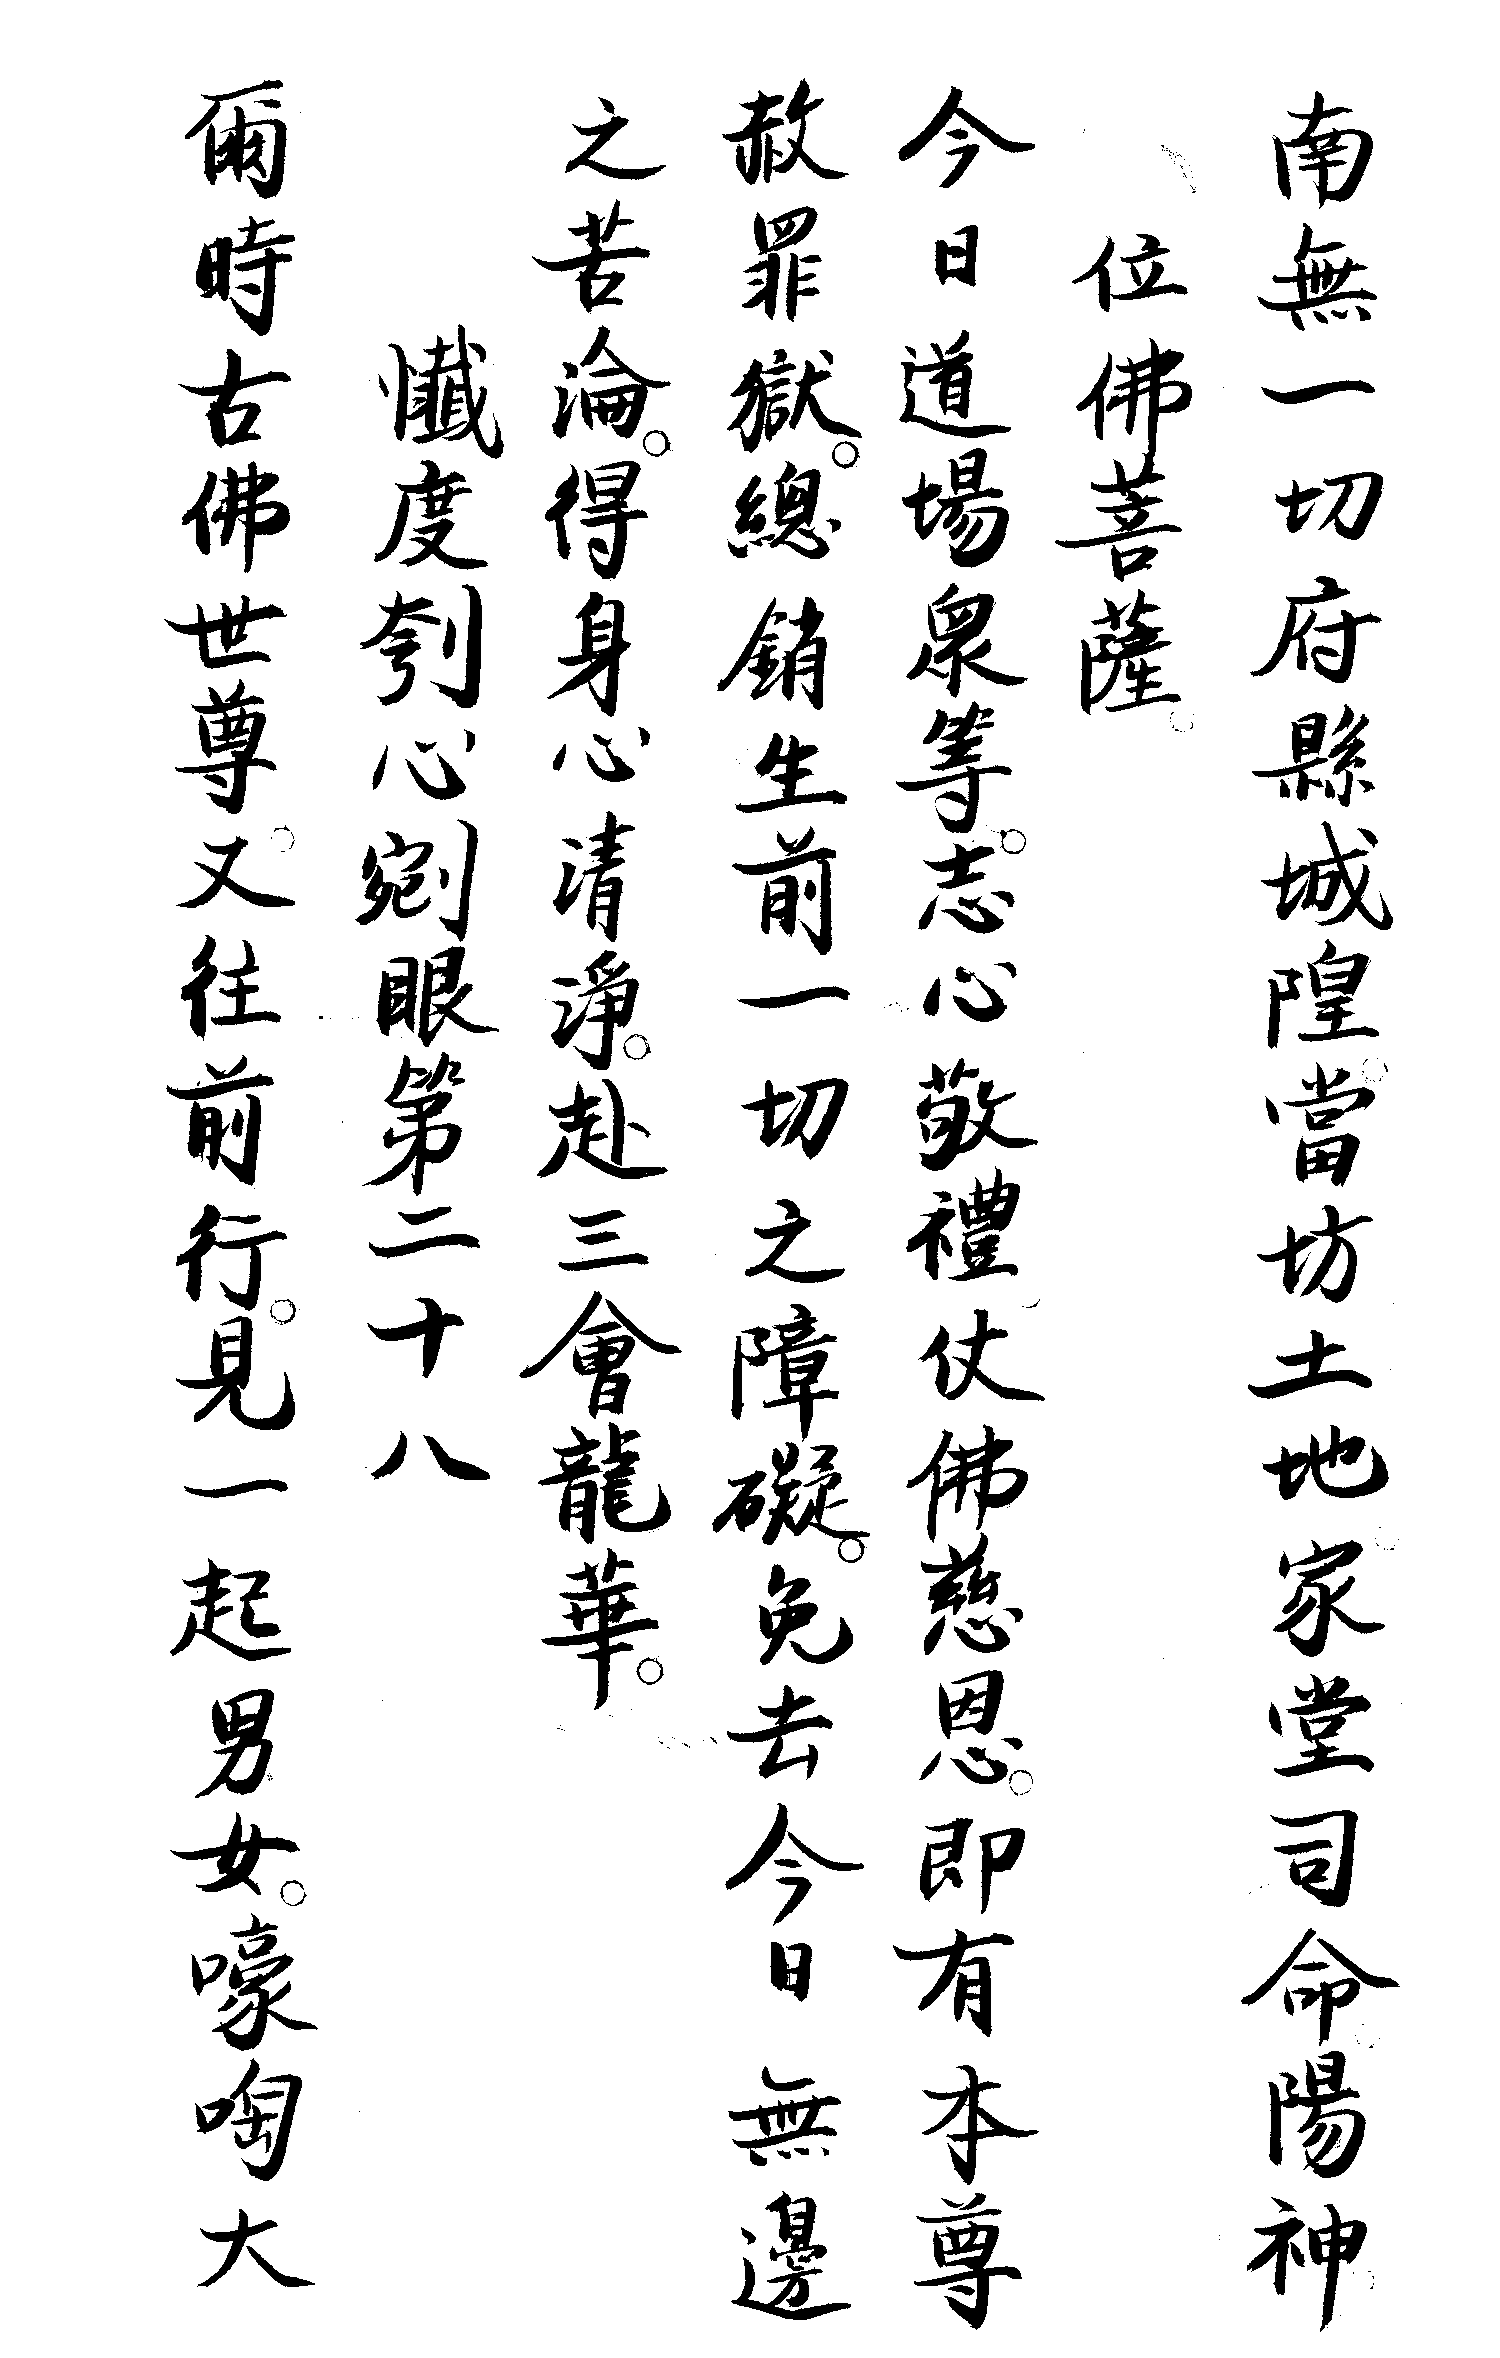 南無一切府縣城隍。當坊土地。家堂司命。陽神。
位佛菩薩。
今日道場眾等。志心敬禮仗佛慈恩。即有本尊
赦罪獄。總銷生前一切之障礙。免去今日無邊
之苦淪。得身心清淨。赴三會龍華。
懺度刳心剜眼第二十八
爾時古佛世尊。又往前行。見一起男女。嚎啕大